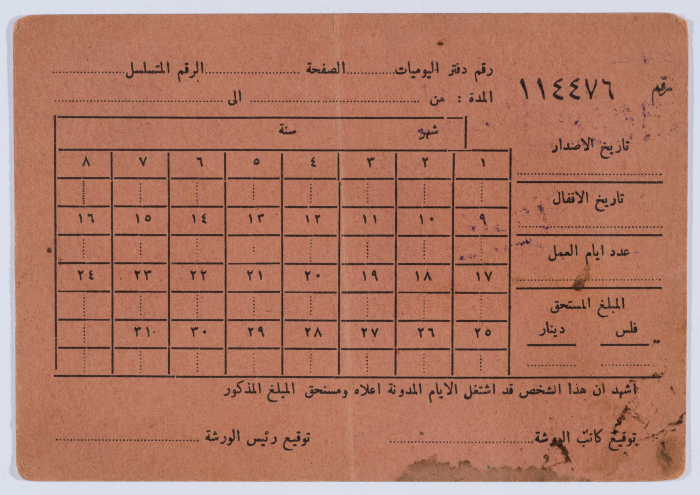 رقم ١١٤٤٧٦
رقم دفتر اليوميات الصفحة الرقم المتسلسل
المدة : من الى
شهر سنة
١ ٢ ٣ ٤ ٥ ٦ ٧ ٨
٩ ١٠ ١١ ١٢ ١٣ ١٤ ١٥ ١٦
١٧ ١٨ ١٩ ٢٠ ٢١ ٢٢ ٢٣ ٢٤
٢٥ ٢٦ ٢٧ ٢٨ ٢٩ ٣٠ ٣١
تاريخ الاصدار
تاريخ الاقفال
عدد ايام العمل
المبلغ المستحق
فلس دينار
اشهد ان هذا الشخص قد اشتغل الايام المدونة اعلاه ومستحق المبلغ المذكور
توقيع كاتب الورشة توقيع رئيس الورشة